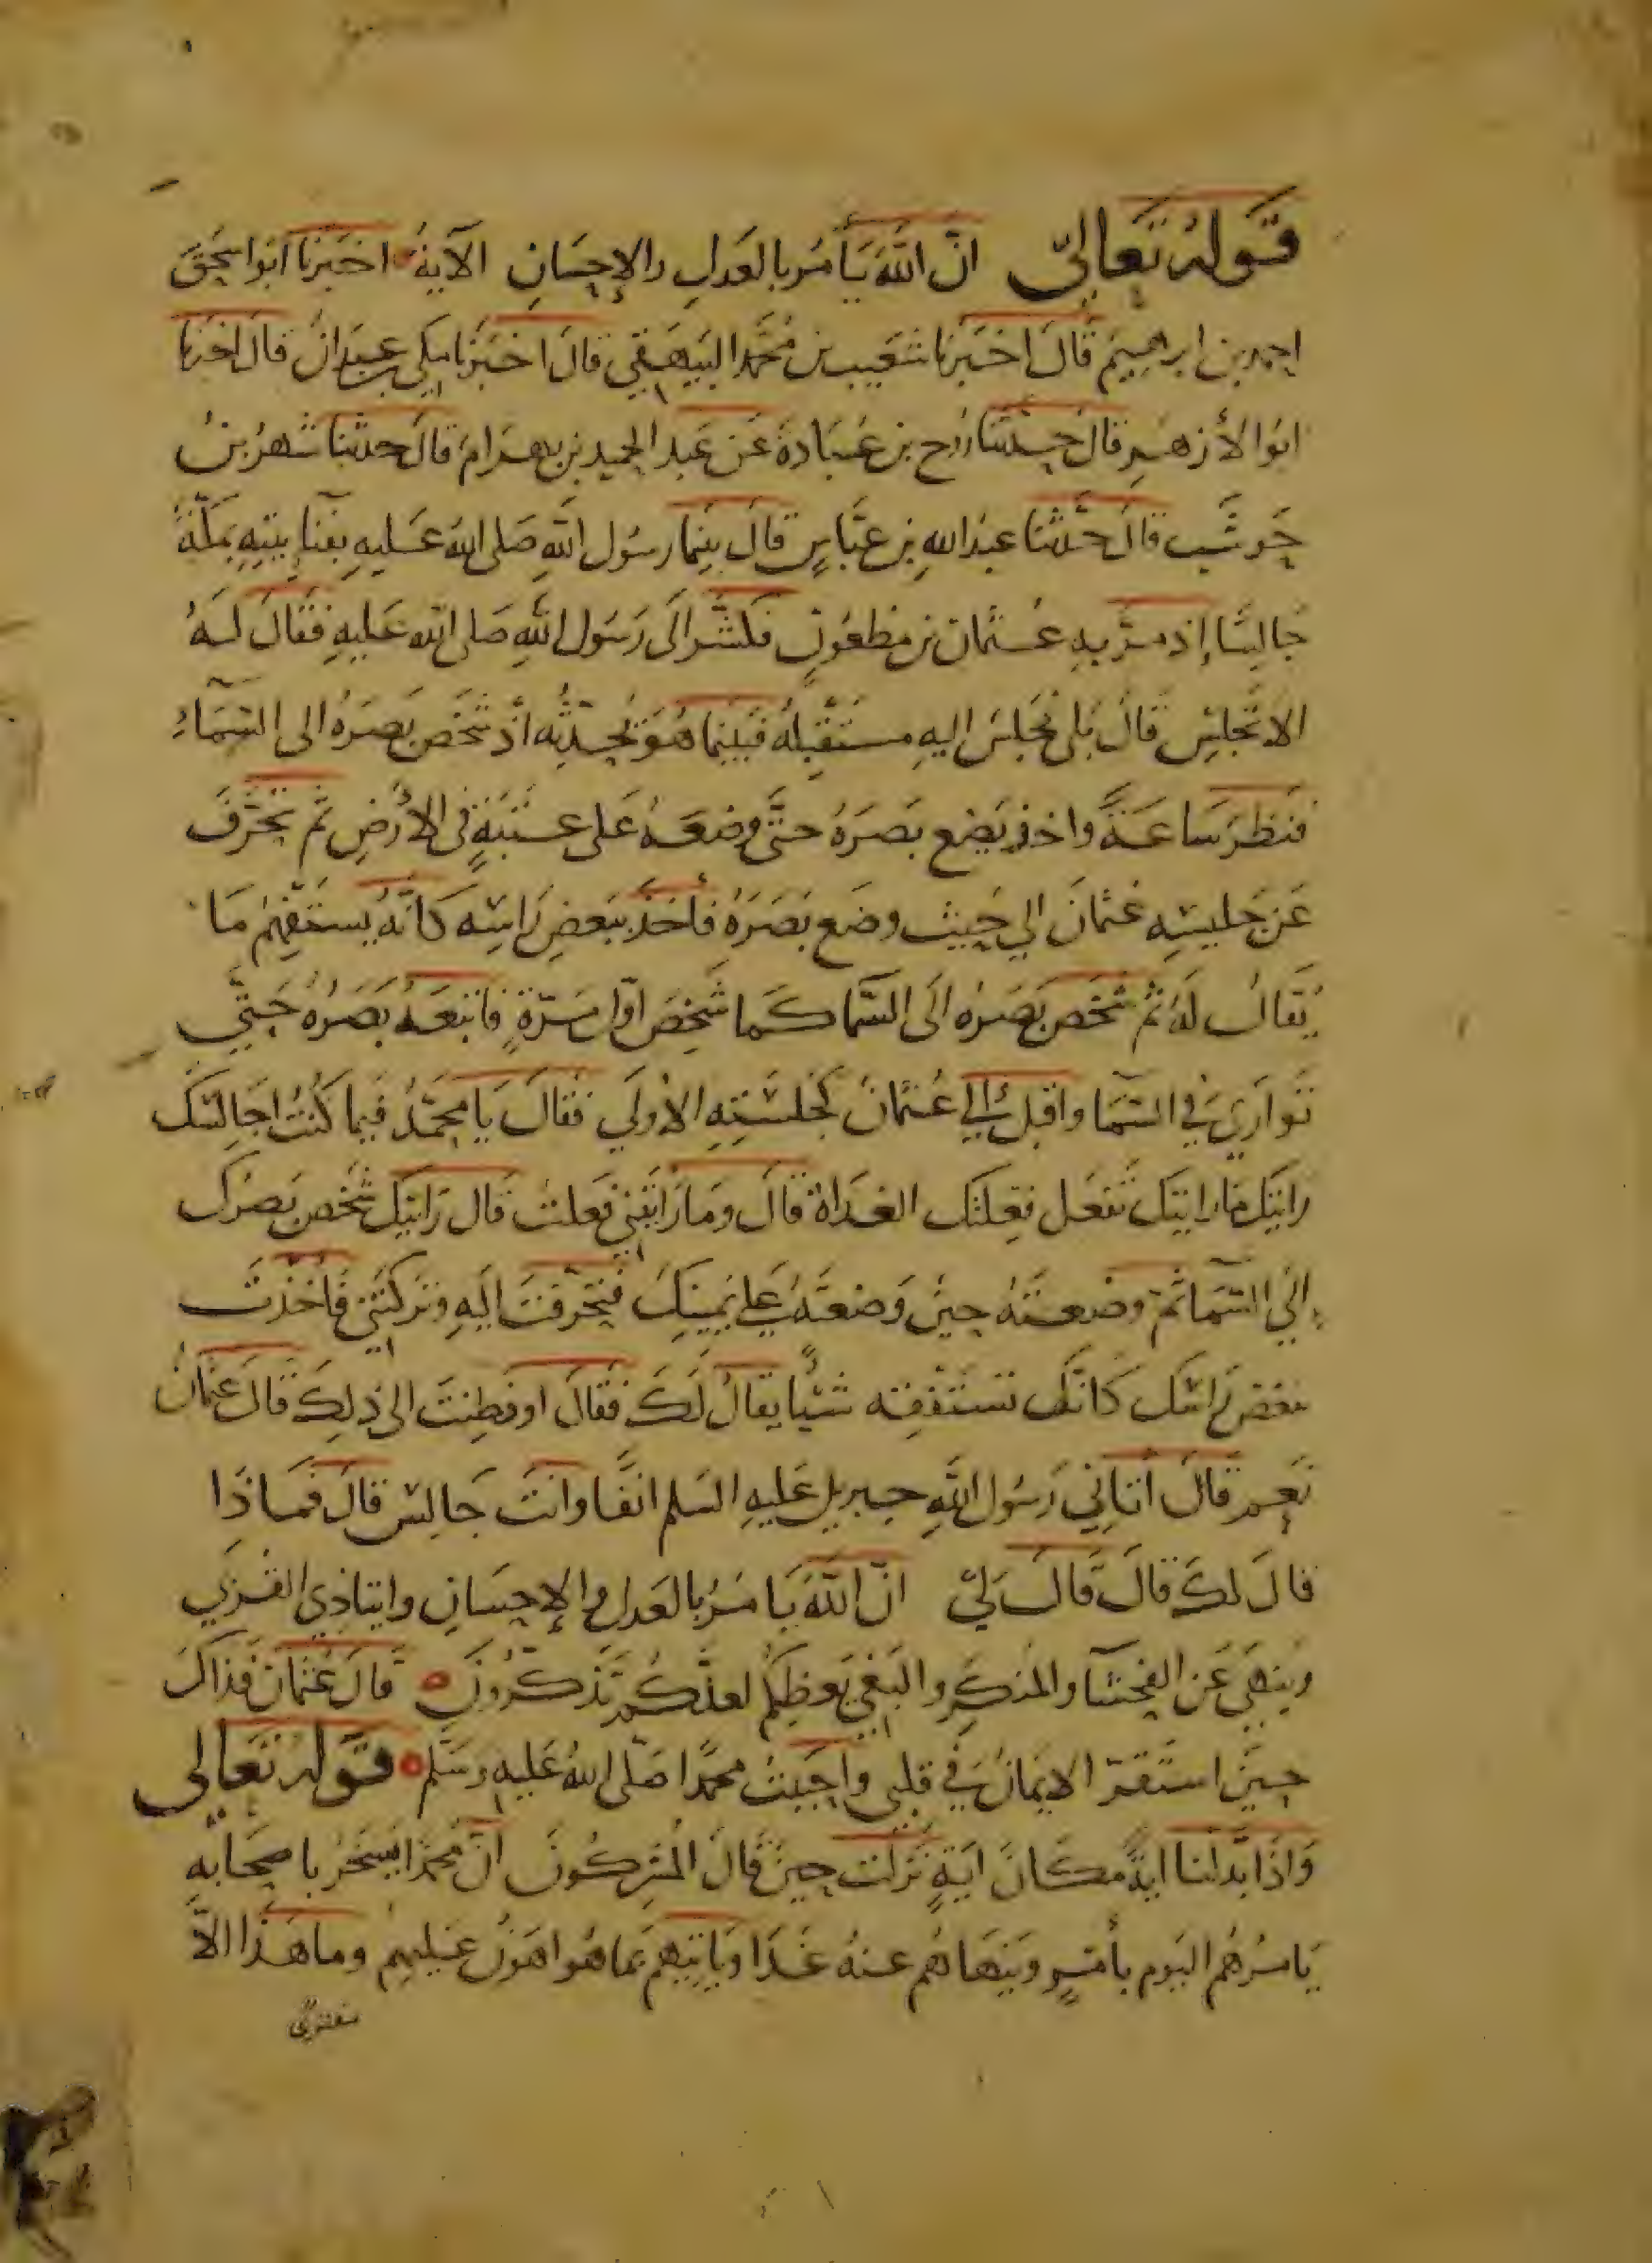 قوله تعالى ان الله يأمر بالعدل والإحسان الآية اخبرنا ابو اسحق
احمد بن ابرهيم قال اخبرنا شعيب بن محمد البيهقي قال اخبرنا مكي بن عبدان قال اخبرنا
ابو الأزهر قال حدثنا روح بن عبادة عن عبد الحميد بن بهرام قال حدثنا شهر بن
حوشب قال حدثنا عبد الله بن عباس قال بينما رسول الله صلى الله عليه بفنا بيته بمكة
جالسا إذ مر به عثمان بن مظعون فكشر الى رسول الله صلى الله عليه فقال له
الا تجلس قال بلى فجلس اليه مستقبله فبينما هو يحدثه اذ شخص بصره الى السماء
فنظر ساعة واخذ يضع بصره حتى وضعه على عتبة في الأرض ثم تحرف
عن جليسه عثمان الي حيث وضع بصره فأخذ ينغض راسه كانه يستفهم ما
يقال له ثم شخص بصره الى السما كما شخص اول مرة فاتبعه بصره حتي
توارى في السما واقبل الي عثمان كجلسته الأولي فقال يا محمد فيما كنت اجالسك
رايتك ما رايتك تفعل فعلتك الغداة قال وما رايتني فعلت قال رايتك شخص بصرك
الي السما ثم وضعته حين وضعته علي يمينك فتحرفت اليه وتركتني فأخذت
تنغض راسك كانك تستفقه شيئا يقال لك فقال او فطنت الى ذلك قال عثمان
نعم قال أتاني رسول الله جبريل عليه السلم انفا وانت جالس قال فماذا
قال لك قال قال لي ان الله يامر بالعدل والإحسان وايتا ذي القربي
وينهى عن الفحشا والمنكر والبغي يعظكم لعلكم تذكرون قال عثمان فذاك
حين استقر الايمان في قلبي واحببت محمدا صلى الله عليه وسلم قوله تعالى
واذا بدلنا اية مكان اية نزلت حين قال المشركون ان محمدا يسخر باصحابه
يامرهم اليوم بأمر وينهاهم عنه غدا وياتيهم بما هو اهون عليهم وما هذا الا
مفتري